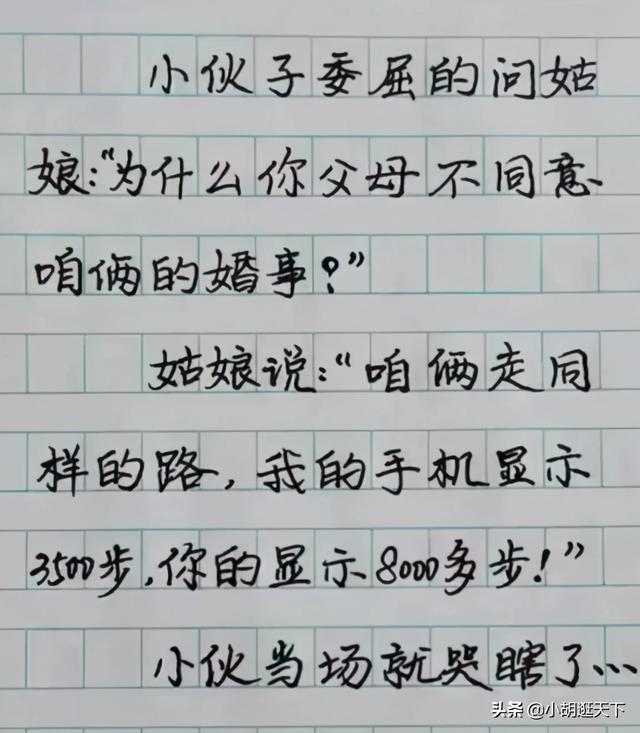 小伙子委屈的问姑
娘:“为什么你父母不同意
咱俩的婚事?”
姑娘说:“咱俩走同
样的路,我的手机显示
3500步,你的显示8000多步!”
小伙当场就哭瞎了...
头条 @小胡逛天下